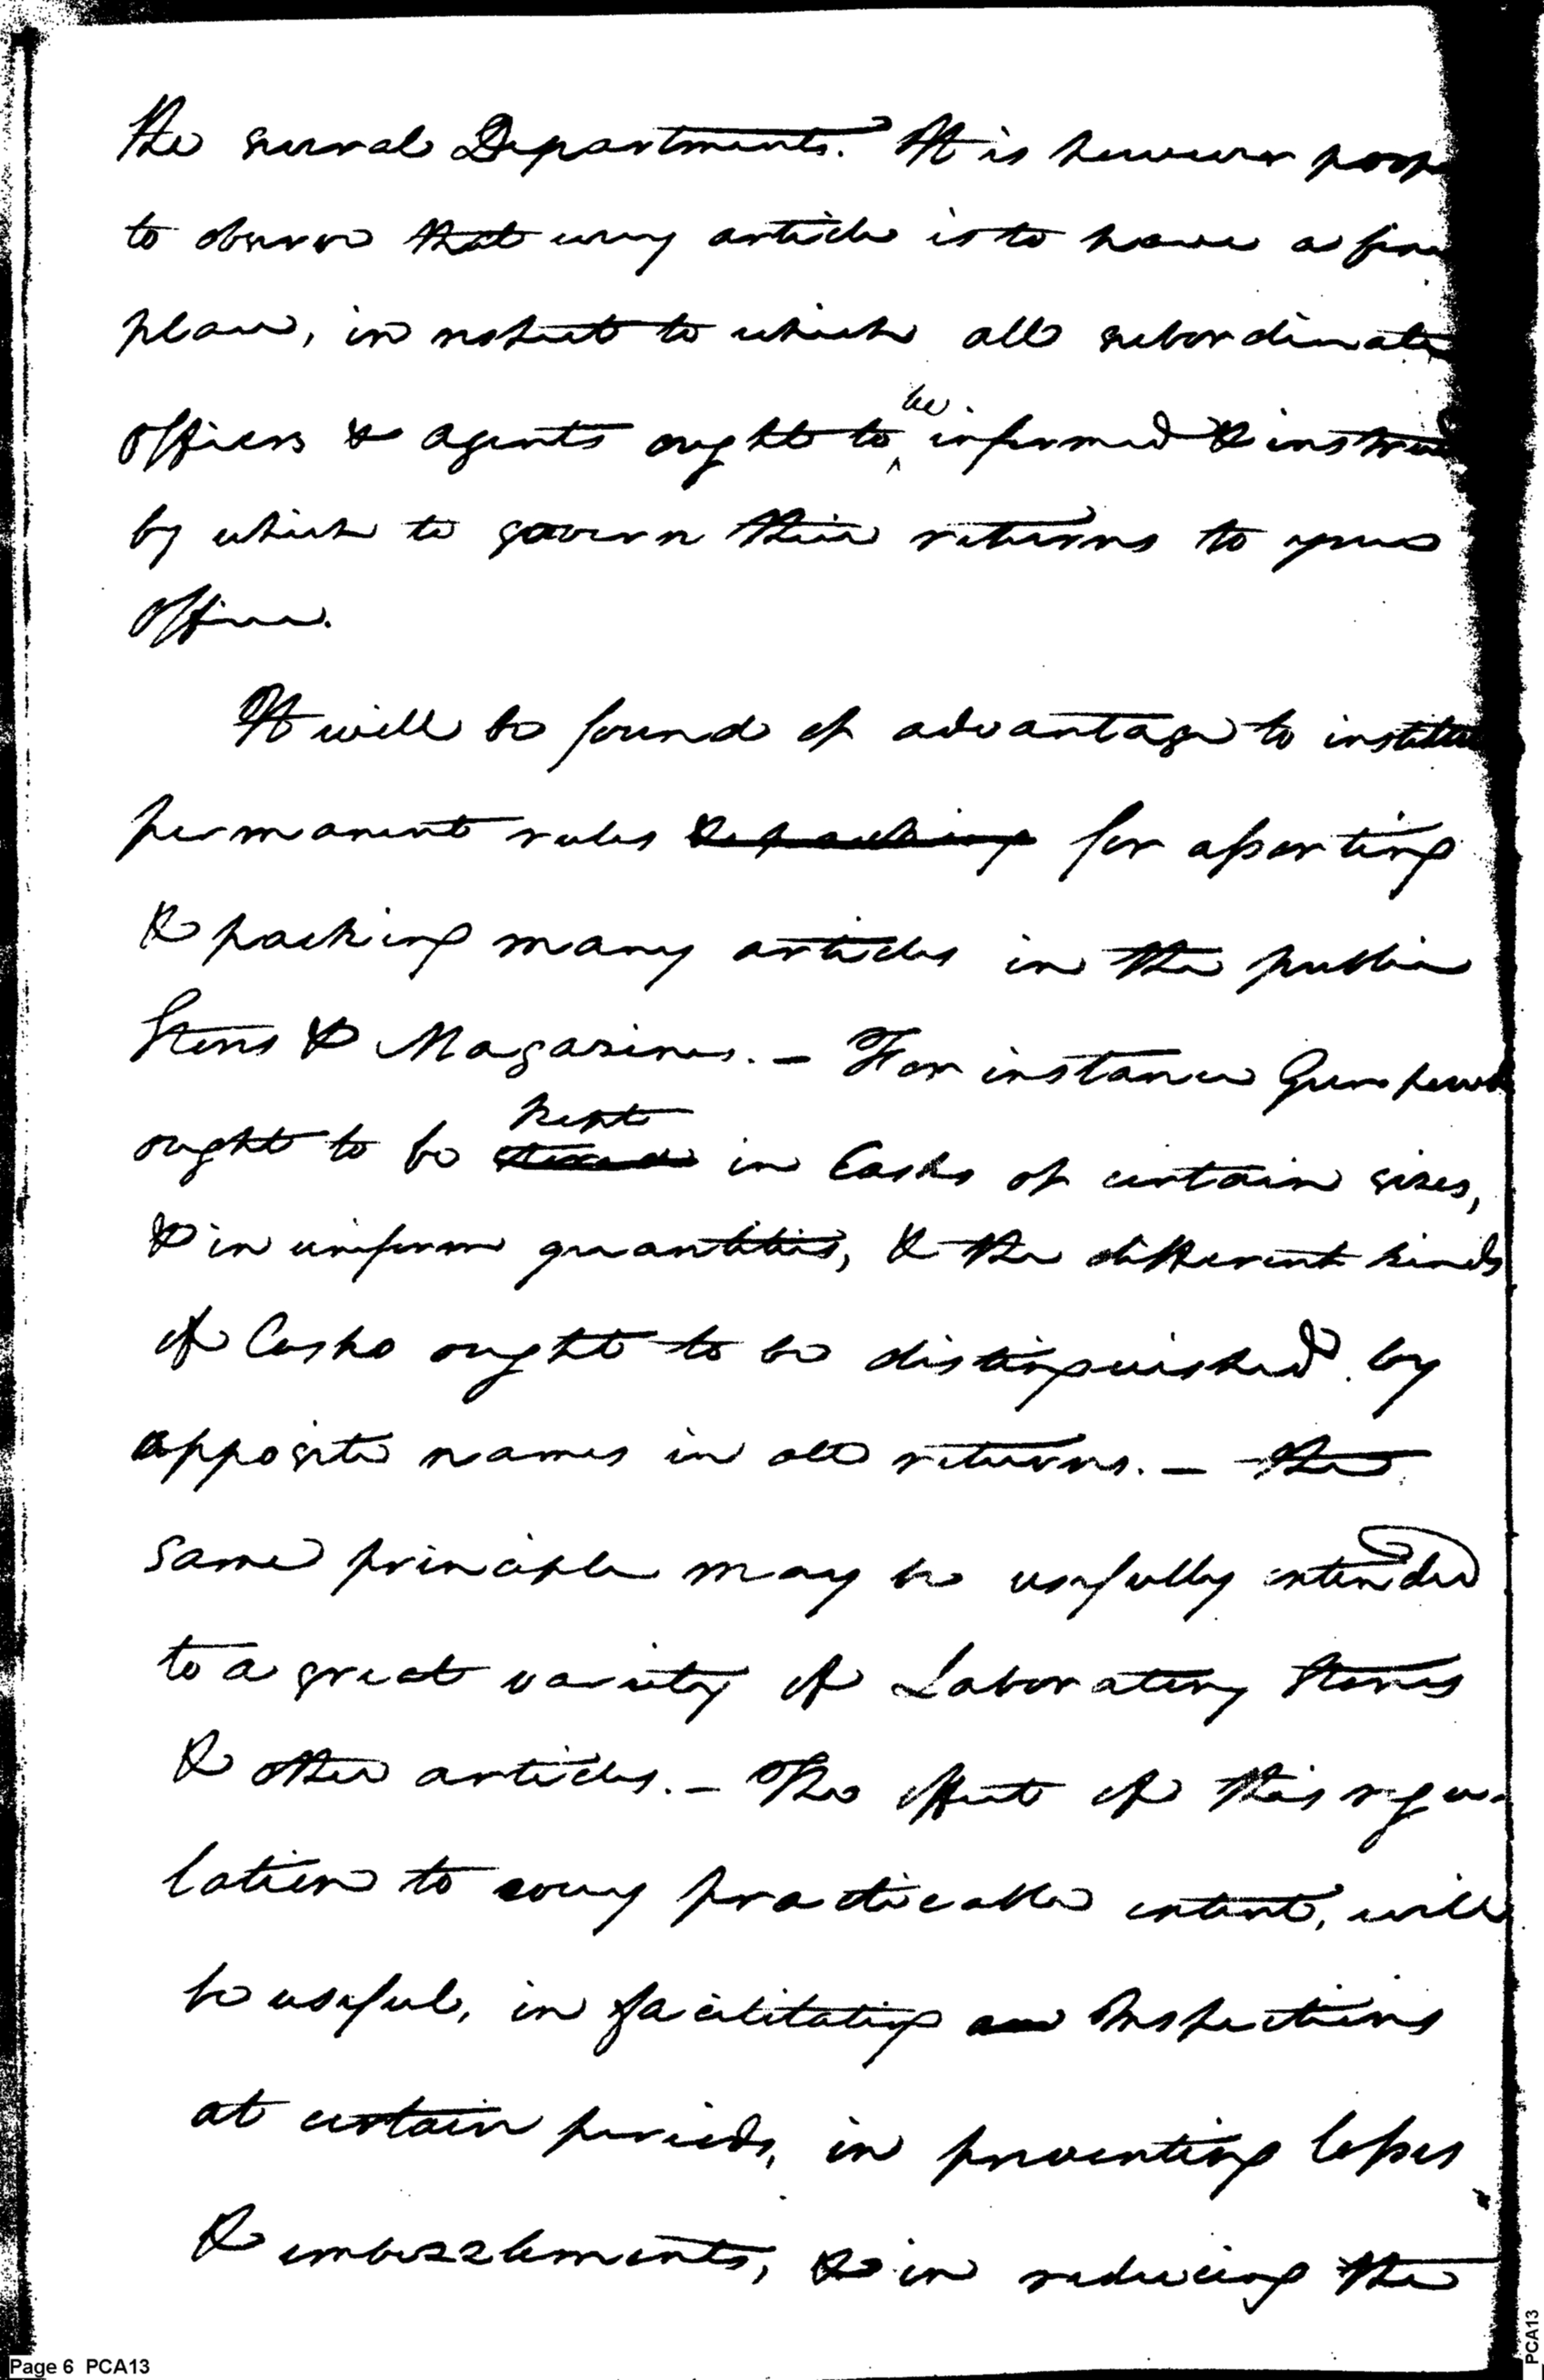 the several Departments. It is however prop
to observe that every article is to have a fixed
place, in respect to which all subordinate
officers & agents ought to be informed & instruc
by which to govern their returns to your
office.
It will be found of advantage to institute
permanent rules & packing for assorting
& packing many articles in the public
Stores & Magazines. — For instance Gunpowd
ought to be stored kept in Casks of certain sizes,
& in uniform quantities, & the different kinds
of Casks ought to be distinguished by
apposite names in all returns. — the
same principle may be usefully extended
to a great variety of Laboratory Stores
& other articles. — The effect of this regu-
lation to every practicable extent, will
be useful, in facilitating Inspections
at certain periods, in preventing losses
& embezzlements, & in reducing the
Page 6 PCA13
PCA13